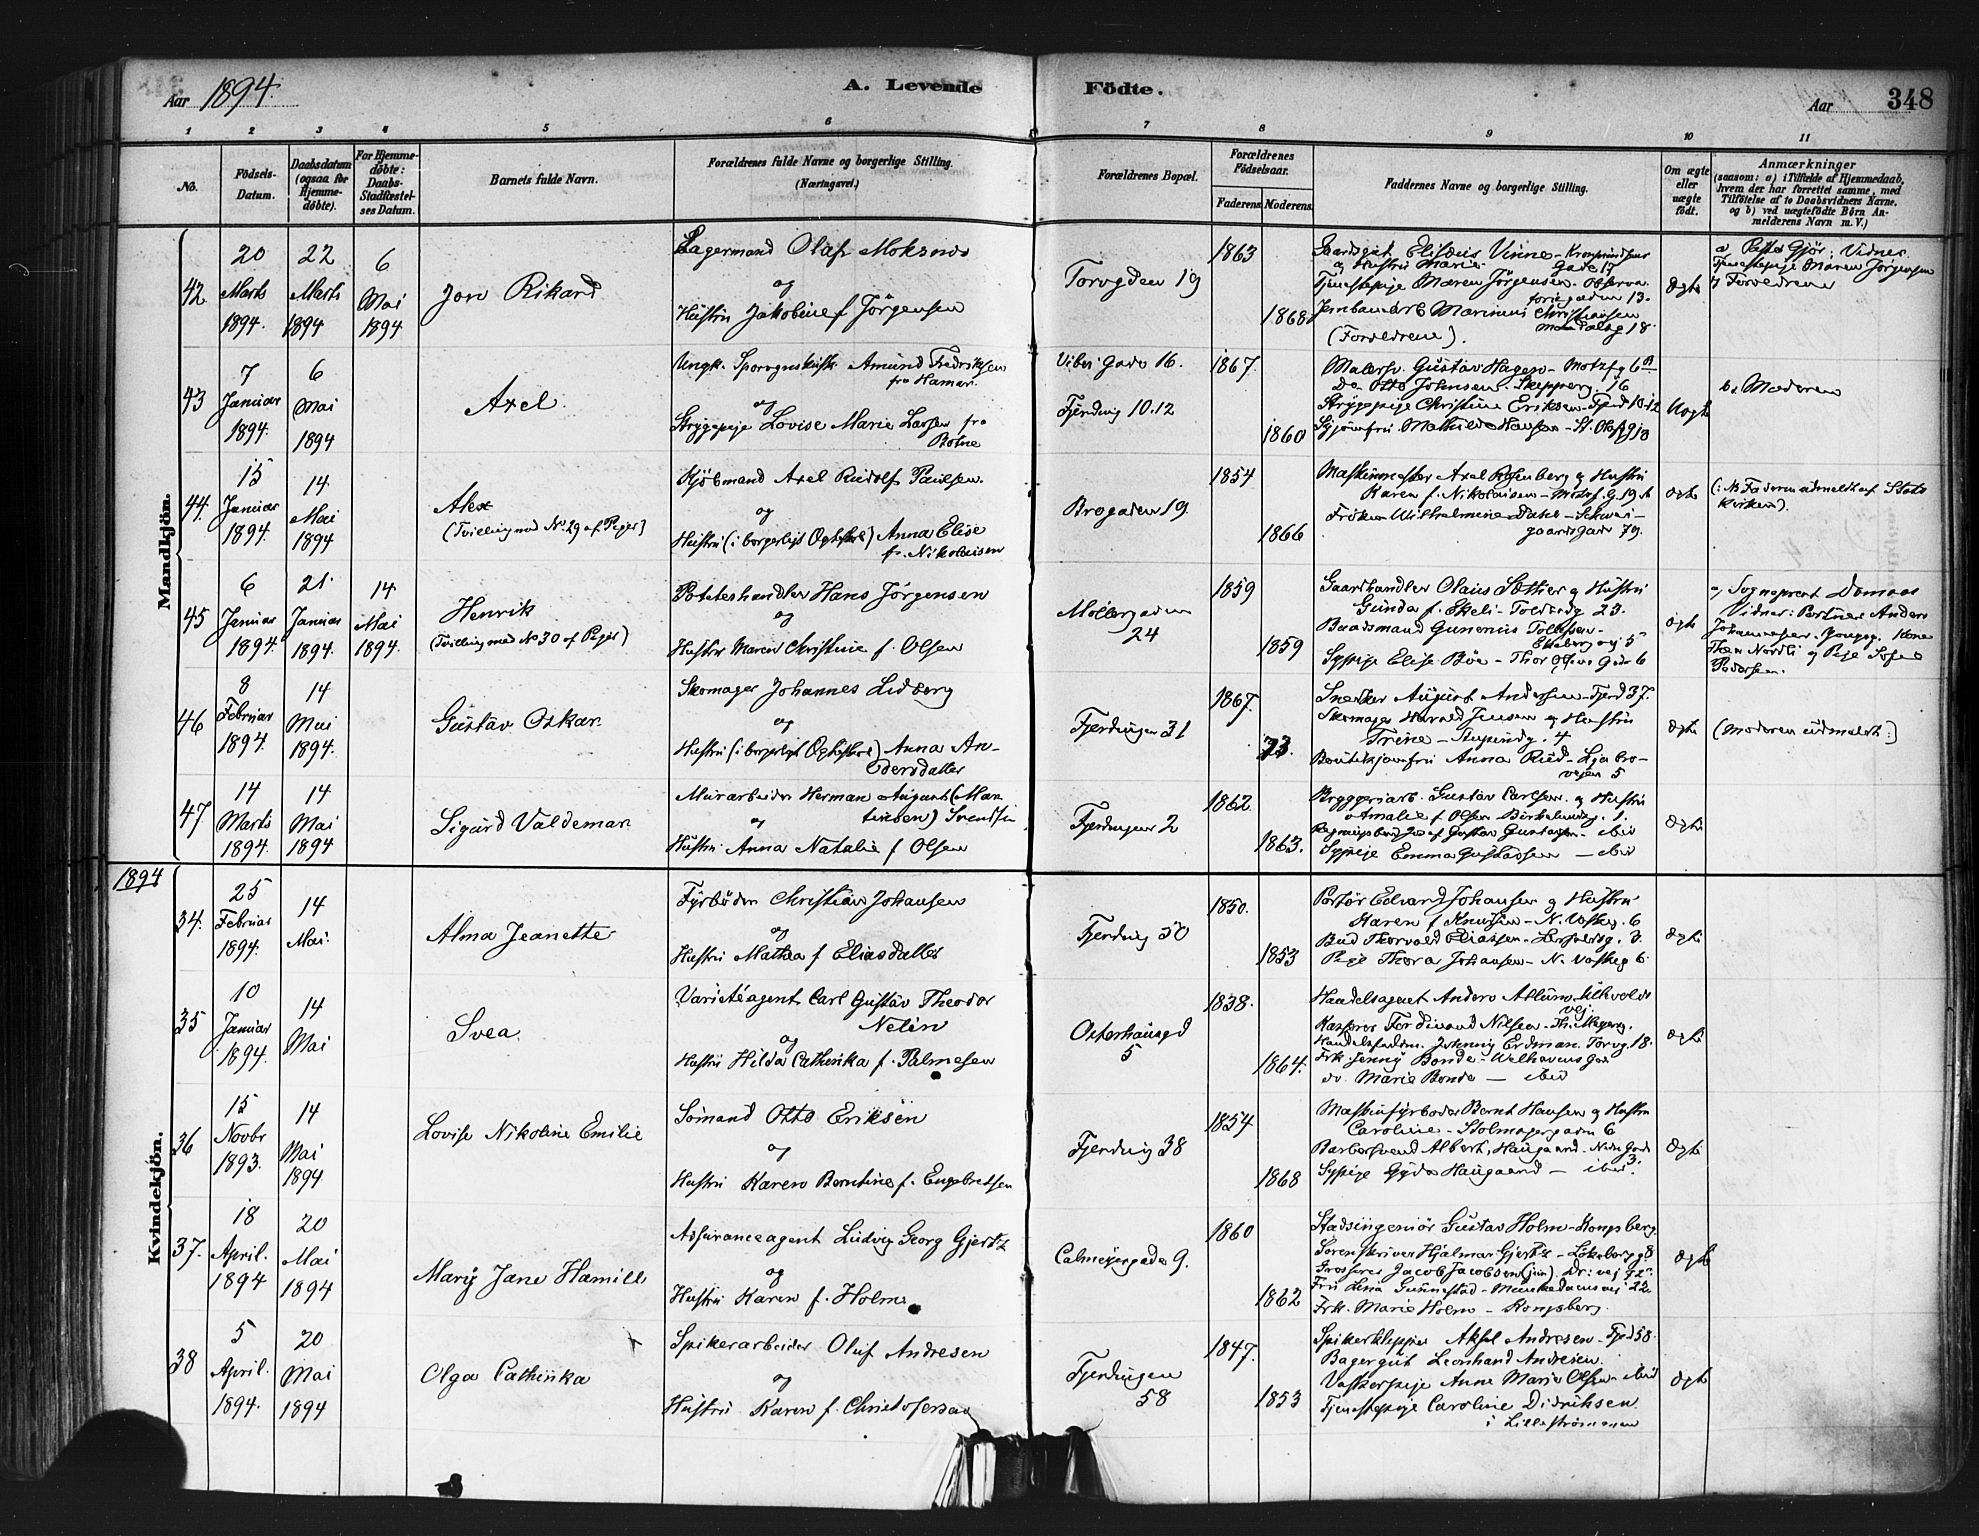 Aar 1894.
A. Levende Födte.
Aar
348
1 2 3 4 5 6 7 8 9 10 11
No.
Födsels-Datum.
Daabsdatum (ogsaa for Hjemme-döbte).
For Hjemme-döbte: Daabs-Stadfæstel-ses Datum.
Barnets fulde Navn.
Forældrenes fulde Navne og borgerlige Stilling. (Næringsvei.)
Forældrenes Bopæl.
Forældrenes Födselsaar.
Faderens. Moderens.
Faddernes Navne og borgerlige Stilling.
Om ægte eller uægte födt.
Anmærkninger
(saasom: a) i Tilfælde af Hjemmedaab,
hvem der har forrettet samme, med
Tilföielse af to Daabsvidners Navne.
og b) ved uægtefödte Börn An-
melderens Navn m. V.)
Mandkjön.
42
20 Marts 1894.
22 Marts 1894
6 Mai 1894
Jon Rikard
Lagermand Olaf Moksnes
og
Hustru Jakobine f Jörgensen
Torvgden 19
1863
1868
Tjenestepige Maren Jörgensen
Jernbanearb Marinus Christiansen
(Forældrene).
Ægte
Tjenestepige Maren Jörgensen
Forældrene
43
7 Januar 1894.
6 Mai 1894
Axel.
Ungk. Amund Fredriksen
fra Hamar.
og
Strygepige Lovise Marie Larsen fra
Botne
Vibes Gade 16.
Fjerding 10.12
1867.
1860
Malersv. Gustav Hagen - Motzfg 6 B
Do Otto Johnsen - Skipperg. 16
Strygepige Christine Eriksen - Fjerd 10.12
Mathilde Hansen - St. Olafs g
Uægte
b, Moderen
44.
15 Januar 1894.
14 Mai 1894
Alex
(Tvilling med No 29 af Piger)
Kjöbmand Axel Rudolf Paulsen.
og
Hustru (i borgerligt Ægteskab) Anna Elise
f. Nikolaisen
Brogaden 19.
1854
1866
Maskinmester Axel Rosenberg og Hustru
Karen f. Nikolaisen
Fröken Wilhelmine
gaardsgade 79.
ægte
(: NB Faderen udmeldt af Stats
kirken).
45
6 Januar 1894.
21. Januar 1894.
14 Mai 1894.
Henrik
(Tvilling med No 30 af Piger)
Poteteshandler Hans Jörgensen
og
Hustru Maren Christine f. Olsen
Möllergaden
24
1859
1859
Gaardhandler Olaus Sæther og Hustru
Gunda f. Ekeli - Toldbodg 23.
Baadsmand Gunerius Tollefsen -
Ekeberg vej 5
Sypige Elise Böe - Thor Olsens Gade 6
ægte
a, Sogneprest
Vidner: Portner Anders
Johannessen
46
8 Februar 1894.
14 Mai 1894.
Gustav Oskar.
Skomager Johannes Lidberg
og
Hustru (i borgerligt Ægteskab) Anna An-
dersdatter
Fjerdingen 31
1867.
73.
Snedker August Andersen - Fjerd 37.
Skomager Harald Jensen og Hustru
Trine
Butikjomfru Anna Rud - Ljabro-
vejen 5
ægte
(Moderen udmeldt:)
47
14 Marts 1894.
14 Mai 1894
Sigurd Valdemar.
Murarbeider Herman August (Mar
tinsen) Svendsen
og
Hustru Anna Natalie f Olsen
Fjerdingen 2
1862.
1863.
Bryggeriarb. Gustav Carlsen. og Hustru
Amalie f Olsen Birkelundg. 1.
Gustav Gustavsen - ibid
Sypige Emma Gustavsen - ibid
Ægte
1894
Kvindekjön.
34.
25 Februar 1894.
14 Mai.
Alma Jeanette
Fyrböder Christian Johansen
og
Hustru Mathea f Eliasdatter
Fjerding 30
1850.
1853
Portör Edvard Johansen og Hustru
Karen f Knudsen - N. Vaskeg. 6
Bud Thorvald Eliassen
Pige Thora Johansen - N. Vaskeg 6.
Ægte
35
10 Januar 1894.
14 Mai
Svea.
Varietéagent Carl Gustav Theodor
Nelin
og
Hustru Hilda Cathinka f. Palmesen
Osterhausgd
5
1838.
1864.
Handelsagent Anders
Kasserer Ferdinand Nilsen
Johnny Erdman. Torvg. 18.
Frk Jenny Bonde - Welhavens Gade
do. Marie Bonde - ibid
ægte
36
15 Novbr 1893.
14 Mai 1894
Lovise Nikoline Emilie
Sömand Otto Eriksen
og
Hustru Karen Berntine f. Engebretsen
Fjerding 38
1854
1868
Maskinfyrböder Bernt Hansen og Hustru
Caroline - Stolmagergaden 6
Barbersvend Albert Haugaard - Nedre Gade
3.
Sypige Gyda Haugaard - ibid
Ægte
37.
18 April. 1894
20 Mai 1894
Mary Jane Hamill
Assuranceagent Ludvig Georg Gjertz
og
Hustru Karen f. Holm
Calmeyergade 9.
1860
1862
Stadsingeniör Gustav Holm - Kongsberg.
Sorenskriver Hjalmar Gjertz - Lökeberg g 8
Grosserer Jacob Jacobsen (jun). Dr: vej 72
Fru Lena Gunnestad - Munkedamsvej 22
Frk. Marie Holm - Kongsberg.
ægte
38
5 April. 1894.
20 Mai 1894
Olga Cathinka
Spikerarbeider Oluf Andresen
og
Hustru Karen f. Christofersen
Fjerdingen
58
1847.
1853
Spikerklipper Aksel Andresen - Fjerd 58.
Bagergut Leonhard Andresen.
Vaskerpige Anne Marie Olsen - ibid
Tjenestepige Caroline Didriksen
i Lilleströmmen
Ægte